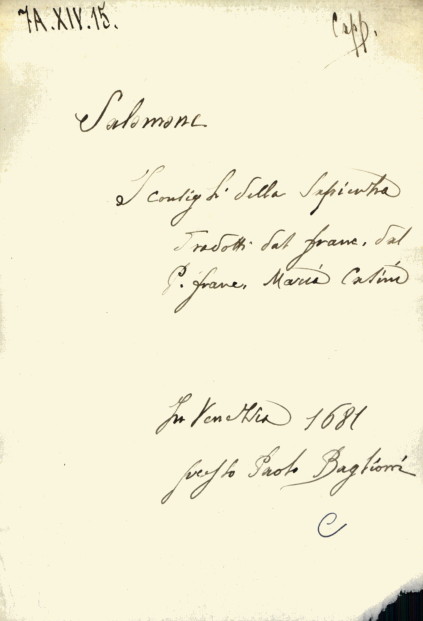 7A.XIV.15.
Capp.
Salomone
I consigli della Sapientia
tradotti dal franc. dal
P. franc. Maria Casini
In Venetia 1681
presso Paolo Baglioni
C